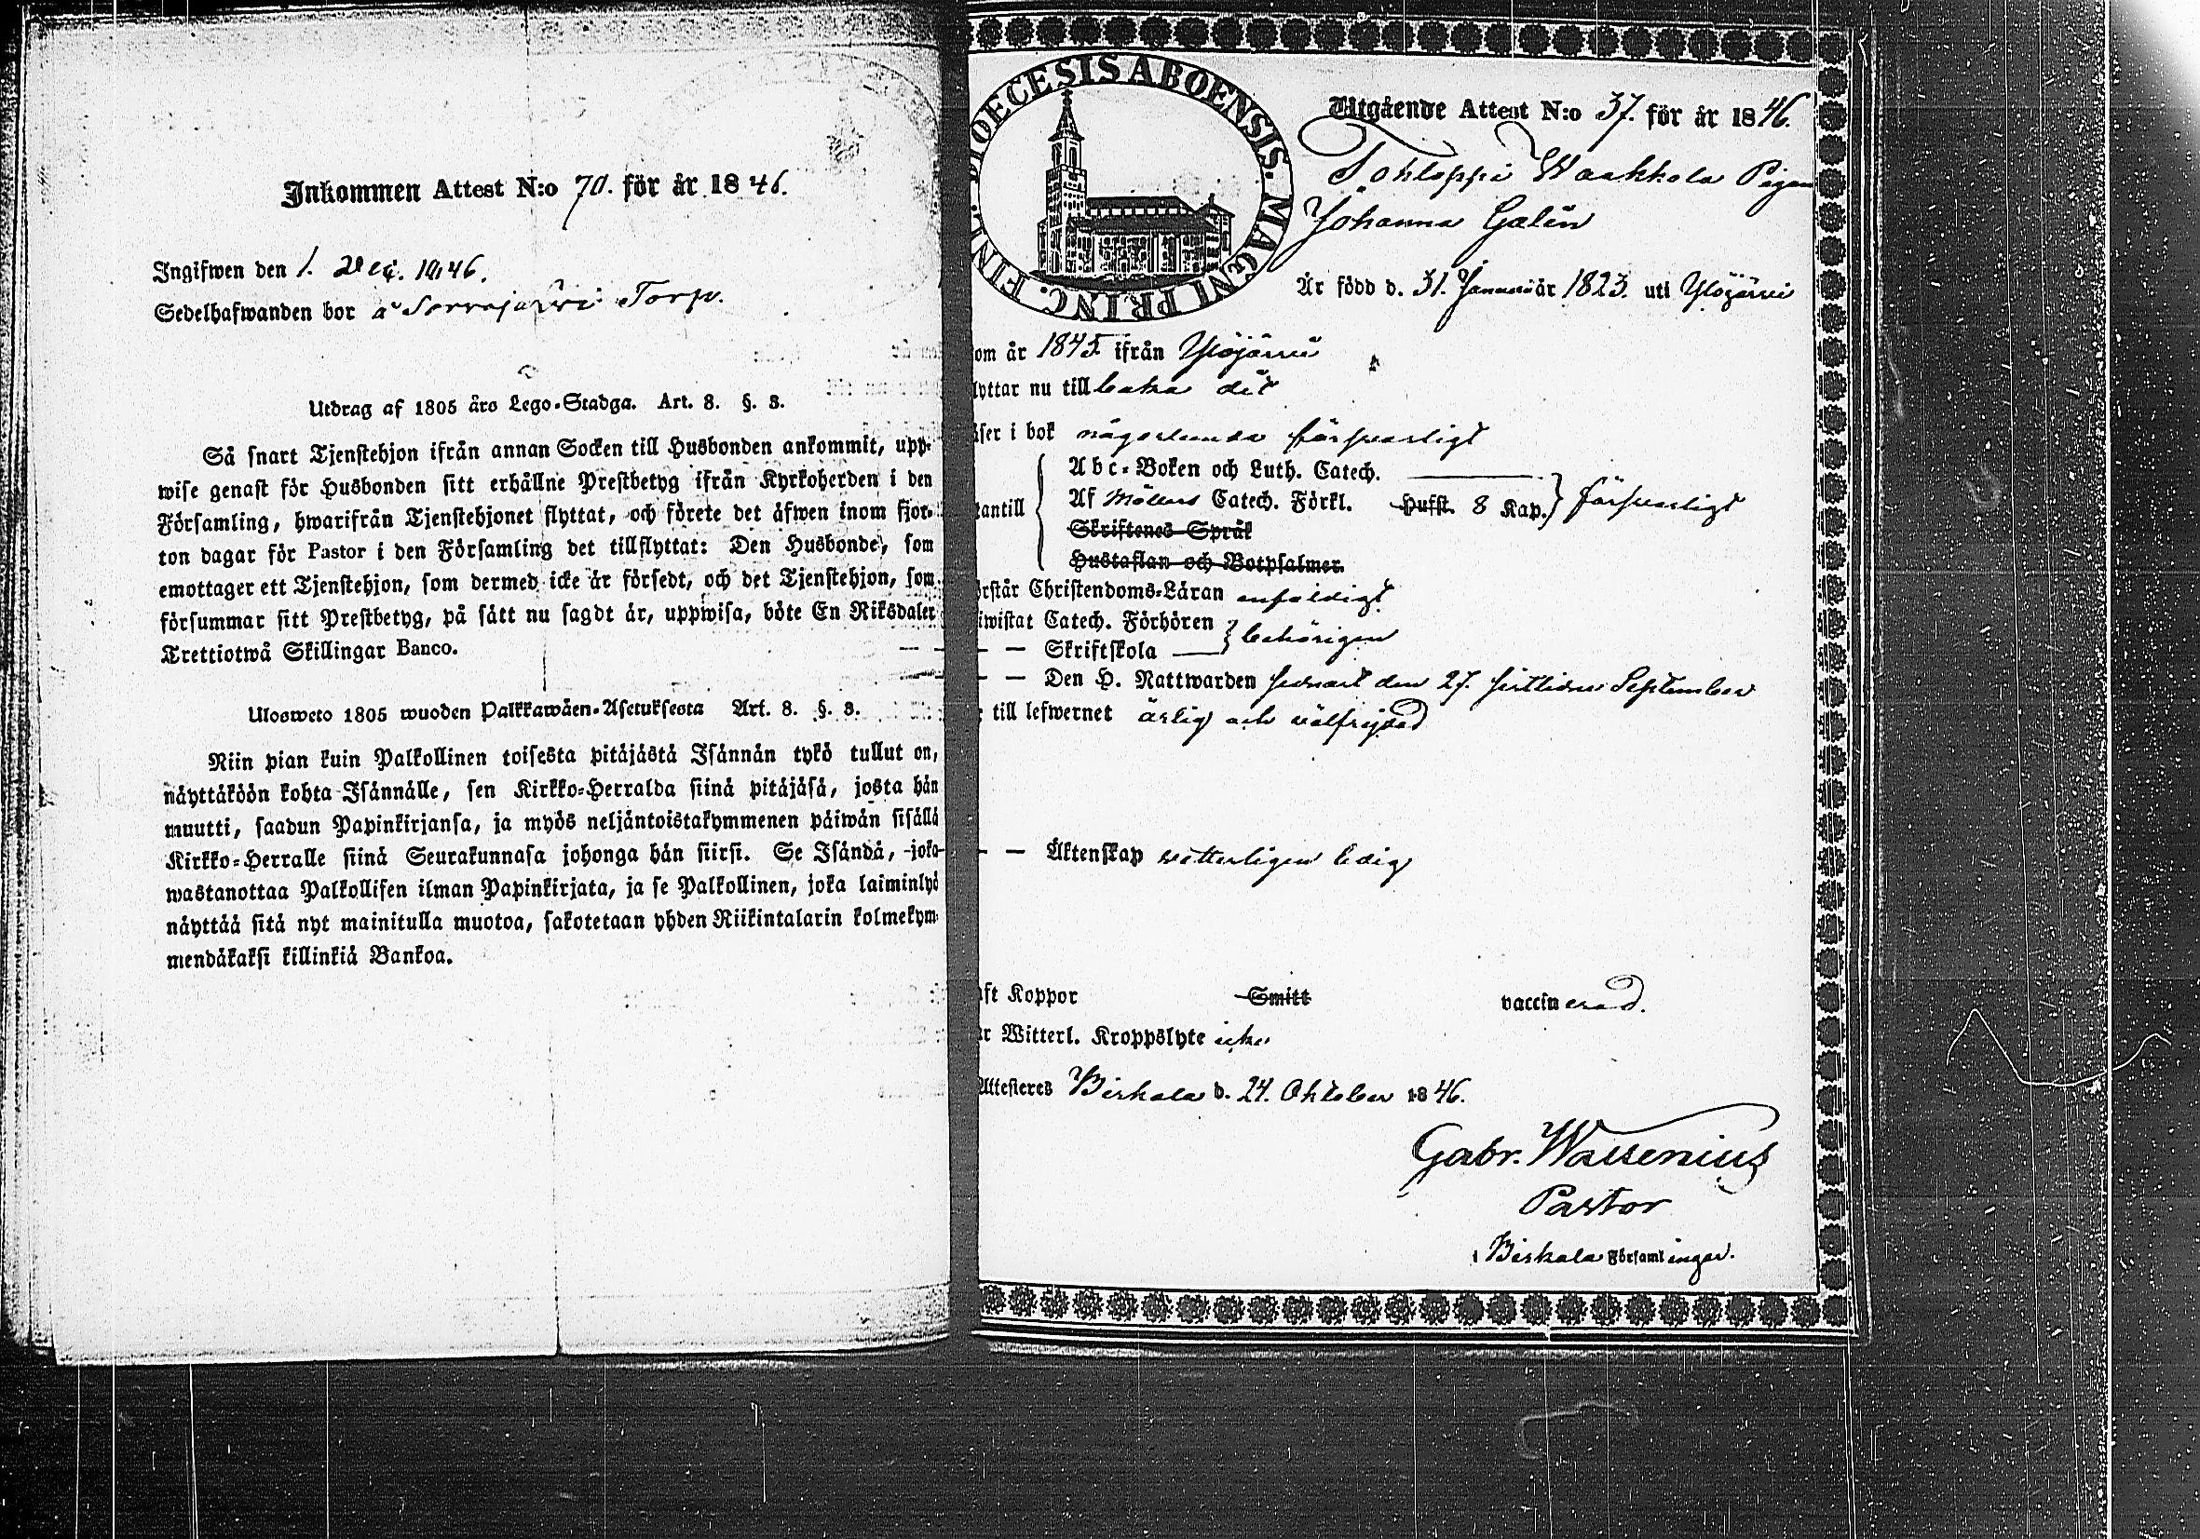 Inkommen Attest N:o 70. för år 1846.
Ingifwen den 1. Dec. 1846.
Sedelhafwanden bor å Sorrajärvi Torp.
Utdrag af 1805 års Lego-Stadga. Art. 8. §. 3.
Så snart Tjenstehjon ifrån annan Socken till Husbonden ankommit, upp-
wise genast för Husbonden sitt erhållne Prestbetyg ifrån Kyrkoherden i den
Församling, hwarifrån Tjenstehjonet flyttat, och förete det äfwen inom fjor-
ton dagar för Pastor i den Församling det tillflyttat: Den Husbonde, som
emottager ett Tjenstehjon, som dermed icke är försedt, och det Tjenstehjon, som
försummar sitt Prestbetyg, på sätt nu sagdt är, uppwisa, böte En Riksdaler
Trettiotwå Skillingar Banco.
Ulosweto 1805 wuoden Palkkawäen-Asetuksesta Art. 8. §. 3.
Niin pian kuin Palkollinen toisesta pitäjästä Isännän tykö tullut on,
näyttäköön kohta Isännälle, sen Kirkko-Herralda siinä pitäjäsä, josta hän
muutti, saadun Papinkirjansa, ja myös neljäntoistakymmenen päiwän sisällä
Kirkko-Herralle siinä Seurakunnasa johonga hän siirsi. Se Isändä, joka
wastanottaa Palkollisen ilman Papinkirjata, ja se Palkollinen, joka laiminlyö
näyttää sitä nyt mainitulla muotoa, sakotetaan yhden Riikintalarin kolmekym-
mendäkaksi killinkiä Bankoa.
DIOECESIS ABOENSIS. MAGNI PRINC. FINL.
Utgående Attest N:o 37. för år 1846.
Tohloppi Waakkola Pigan
Johanna Galén
Är född d. 31. Januari år 1823. uti Ylöjärvi
om år 1845. ifrån Ylöjärvi
lyttar nu tillbaka dit
äser i bok någorlunda försvarligt
Abc-Boken och Luth. Catech.
tantill Af Möllers Catech. Förkl. Husst. 8 Kap. försvarligt
Skriftenes Språk
Hustaflan och Botpsalmer.
örstår Christendoms-Läran enfaldigt
iwistat Catech. Förhören
— — Skriftskola behörigen
— — Den H. Nattwarden senast den 27. sistlidne September
till lefwernet ärlig och välfrejdad
— — Äktenskap vetterligen ledig
aft Koppor Smitt vaccinerad.
r Witterl. Kroppslyte icke
Attesteres Birkala d. 24. Oktober 1846.
Gabr. Wallenius
Pastor
i Birkala Församlingar.